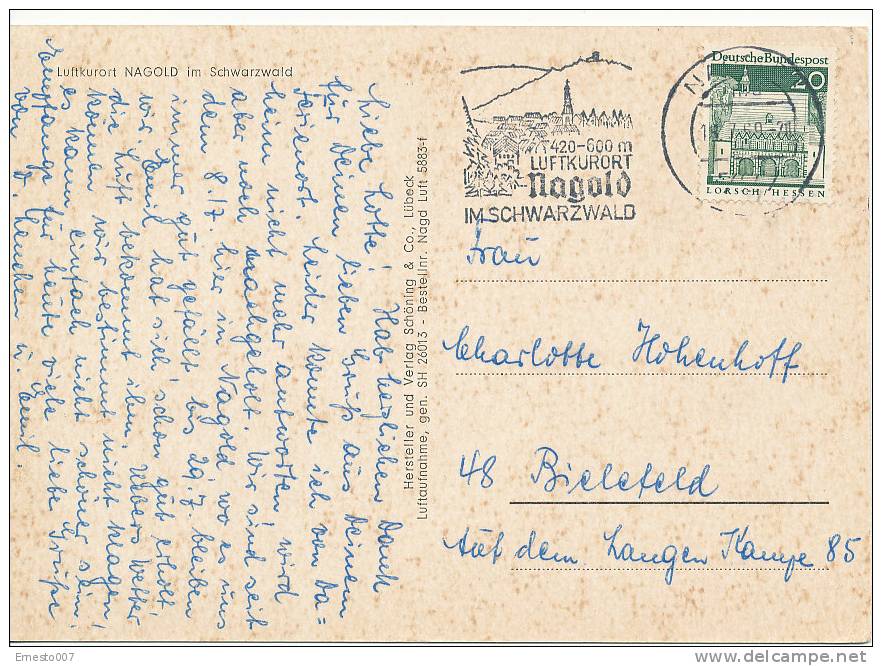 Luftkurort NAGOLD im Schwarzwald
Liebe Lotte! Hab herzlichen Dank
für Deinen lieben Gruß aus Deinem
Ferienort. Leider konnte ich von Da=
heim nicht mehr antworten, wird
aber noch nachgeholt. Wir sind seit
dem 8./7. hier in Nagold wo es uns
immer gut gefällt bis 29.7. bleiben
wir. Emil hat sich schon gut erholt
die Luft bekommt ihm. Übers Wetter
können wir bestimmt nicht klagen!
es kann einfach nicht schöner sein.
Empfange für heute viele liebe Grüße
von D. u. Emil.
Hersteller und Verlag Schöning & Co., Lübeck
Luftaufnahme, gen. SH 26013 - Bestellnr. Nagd Luft 5883-f
420-600 m
LUFTKURORT
Nagold
IM SCHWARZWALD
Deutsche Bundespost
20
LORSCH/HESSEN
Frau
Charlotte Hohenhoff
48 Bielefeld
Auf dem Langen Kampe 85
Ernesto007
www.delcampe.net